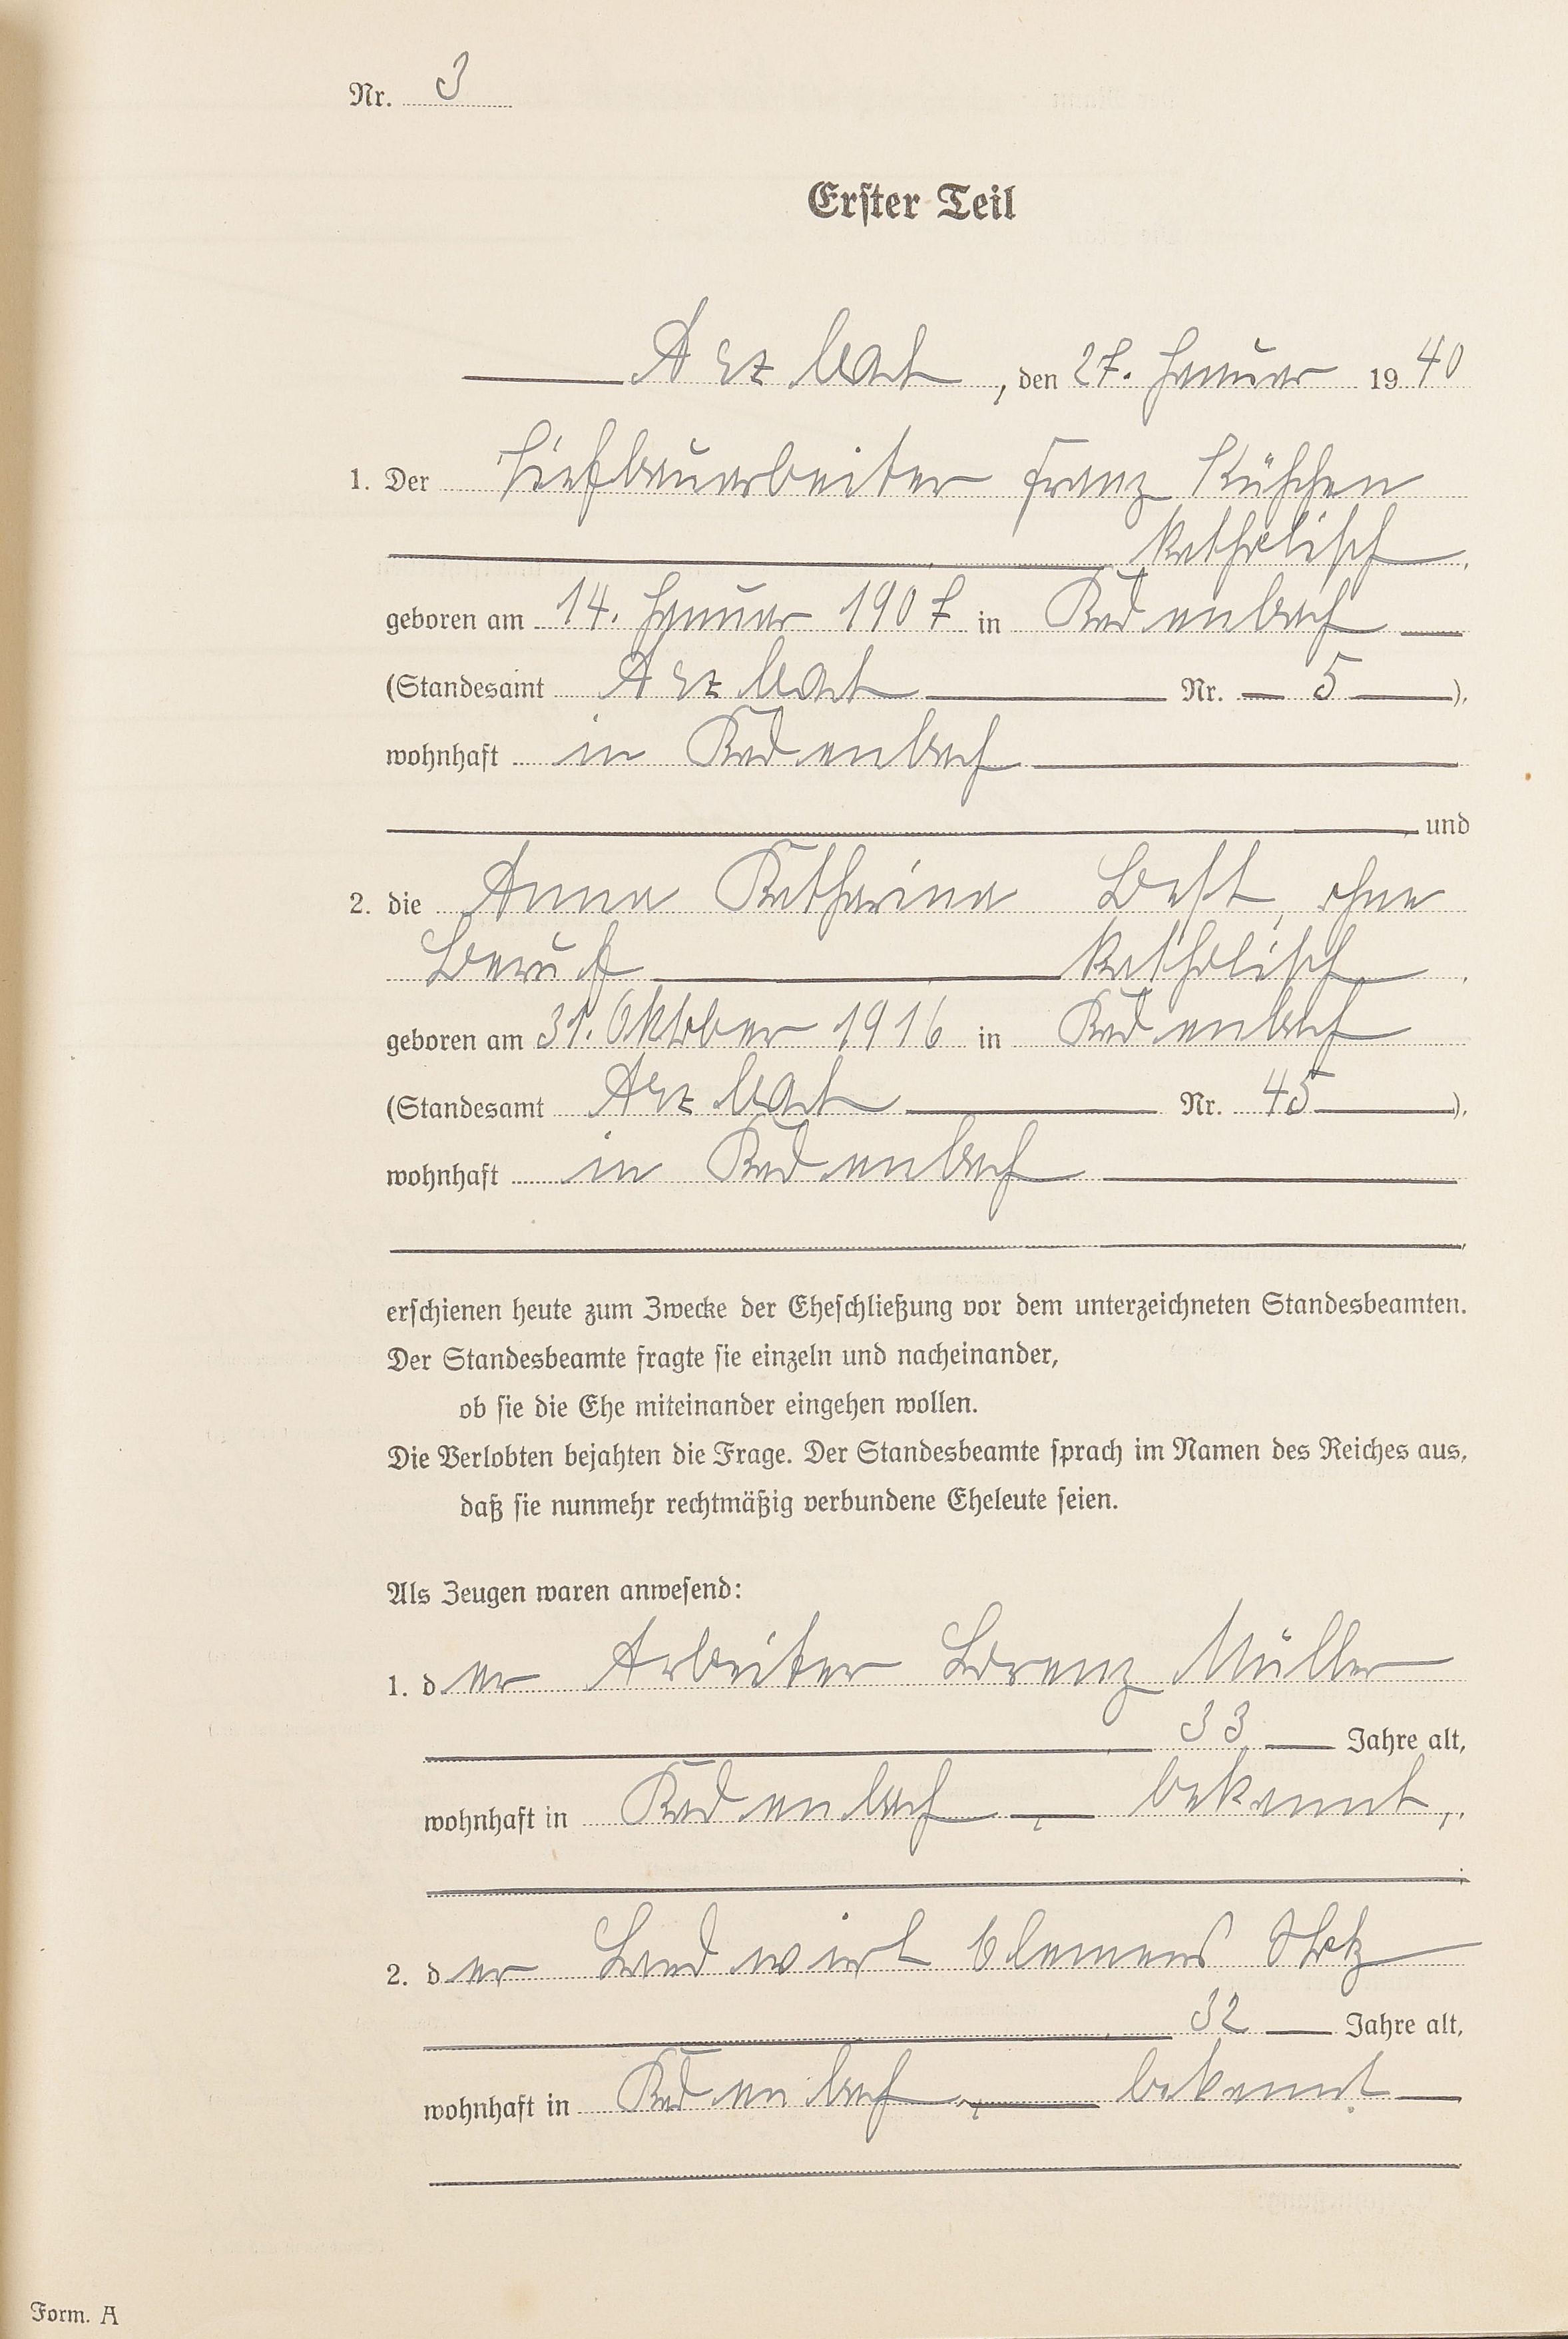 Nr. 3
Erster Teil
Arzbach, den 27. Januar 1940
1. Der Tiefbauarbeiter Franz
katholisch,
geboren am 14. Januar 1907 in Kadenbach
(Standesamt Arzbach Nr. 5),
wohnhaft in Kadenbach
und
2. die Anna Katharina Best, ohne
Beruf katholisch,
geboren am 31. Oktober 1916 in Kadenbach
(Standesamt Arzbach Nr. 45),
wohnhaft in Kadenbach
erschienen heute zum Zwecke der Eheschließung vor dem unterzeichneten Standesbeamten.
Der Standesbeamte fragte sie einzeln und nacheinander,
ob sie die Ehe miteinander eingehen wollen.
Die Verlobten bejahten die Frage. Der Standesbeamte sprach im Namen des Reiches aus,
daß sie nunmehr rechtmäßig verbundene Eheleute seien.
Als Zeugen waren anwesend:
1. der Arbeiter Lorenz Müller
33 Jahre alt,
wohnhaft in Kadenbach, bekannt,
2. der Landwirt Clemens
32 Jahre alt,
wohnhaft in Kadenbach, bekannt
Form. A